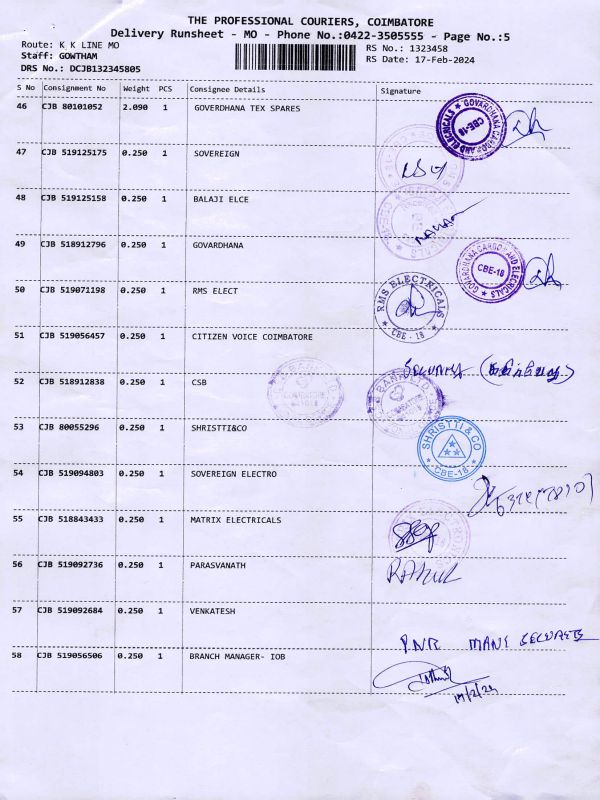 THE PROFESSIONAL COURIERS, COIMBATORE
Delivery Runsheet - MO - Phone No.:0422-3505555 - Page No.:5
Route: K K LINE MO
Staff: GOWTHAM
DRS No.: DCJB132345805
RS No.: 1323458
RS Date: 17-Feb-2024
S No Consignment No Weight PCS Consignee Details Signature
46 CJB 80101052 2.090 1 GOVERDHANA TEX SPARES
GOVARDHANA CARGOR AND ELECTRICALS CBE-18
47 CJB 519125175 0.250 1 SOVEREIGN
48 CJB 519125158 0.250 1 BALAJI ELCE
49 CJB 518912796 0.250 1 GOVARDHANA
GOVARDHANA CARGOR AND ELECTRICALS CBE-18
50 CJB 519071198 0.250 1 RMS ELECT
RMS ELECTRICALS CBE - 18
51 CJB 519056457 0.250 1 CITIZEN VOICE COIMBATORE
52 CJB 518912838 0.250 1 CSB
BANK LTD.
53 CJB 80055296 0.250 1 SHRISTTI&CO
SHRISTTI & CO CBE-18
54 CJB 519094803 0.250 1 SOVEREIGN ELECTRO
55 CJB 518843433 0.250 1 MATRIX ELECTRICALS
56 CJB 519092736 0.250 1 PARASVANATH
RAHUL
57 CJB 519092684 0.250 1 VENKATESH
P.N.R MANI
58 CJB 519056506 0.250 1 BRANCH MANAGER- IOB
17/2/24